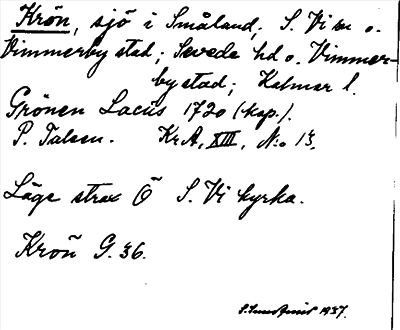 Krön, sjö i Småland; S. Vi sn o.
Vimmerby stad; Sevede hd o. Vimmer-
by stad; Kalmar l.
Grönen Lacus 1720 (kop.).
P. Talsen. Kr A, XIII, N:o 13.
Läge strax Ö S. Vi kyrka.
Krön G. 36.
1937.